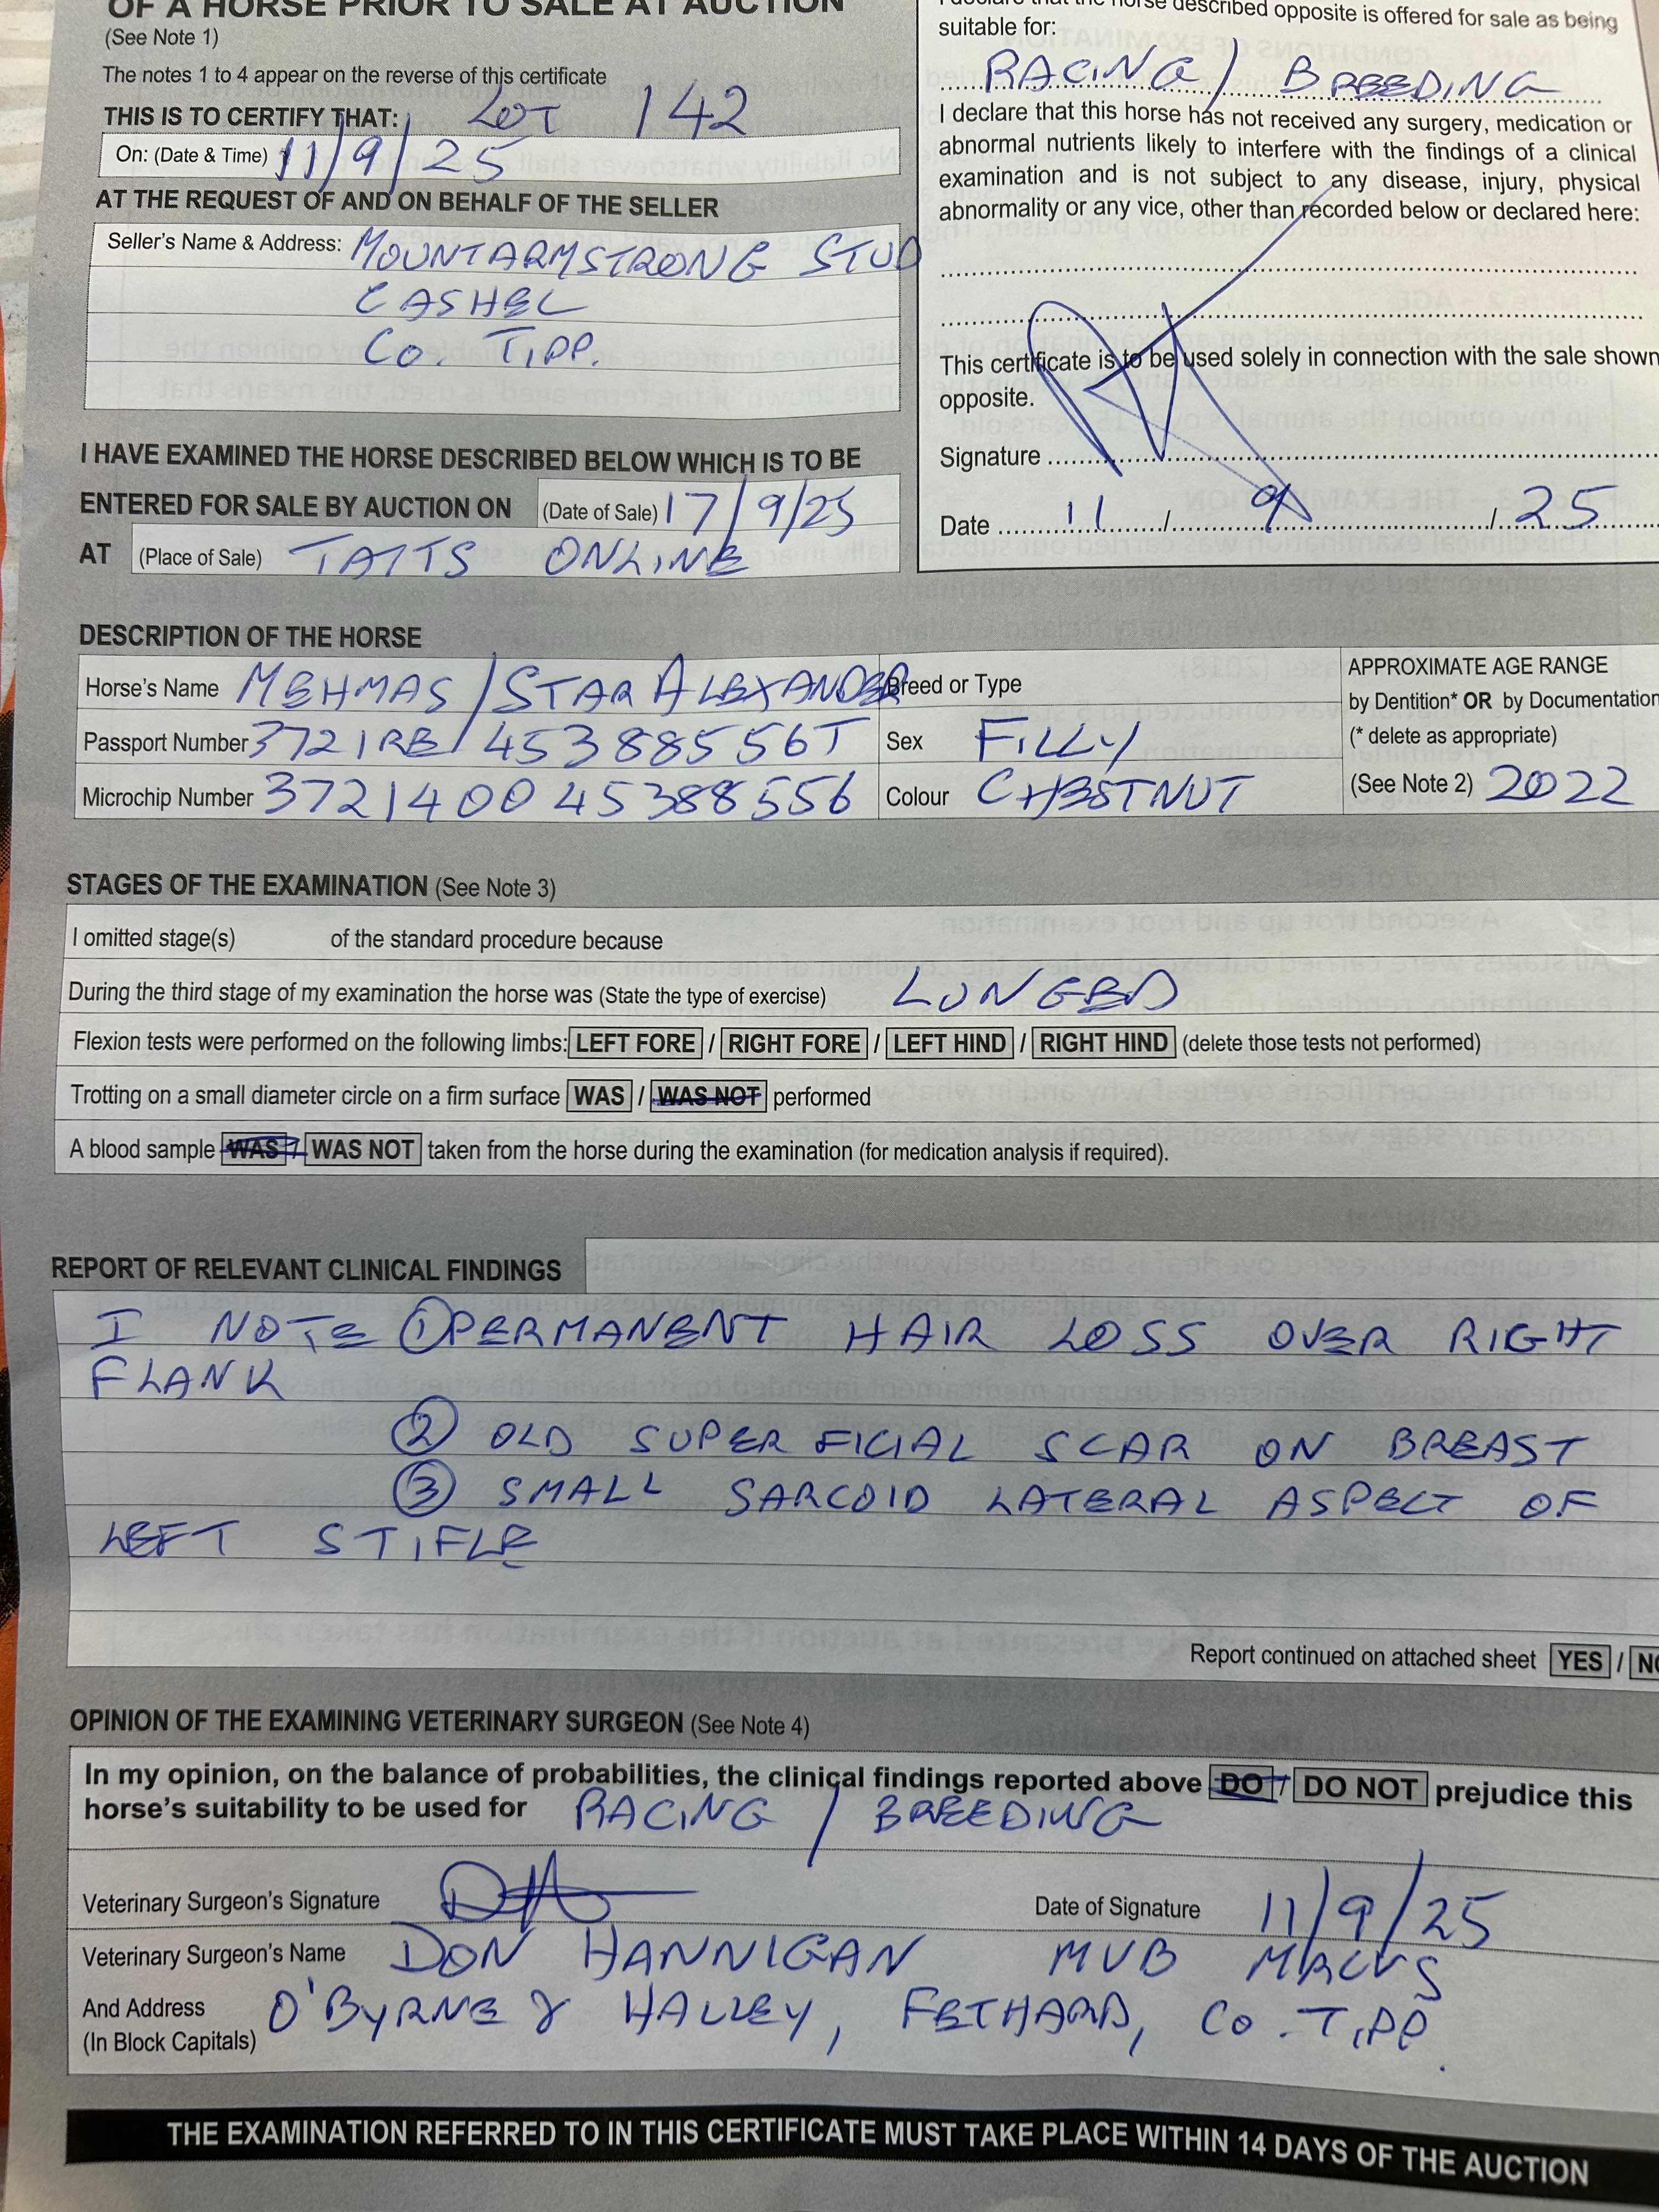 OF A HORSE PRIOR TO SALE AT AUCTION
(See Note 1)
The notes 1 to 4 appear on the reverse of this certificate
THIS IS TO CERTIFY THAT: LOT 142
On: (Date & Time) 11/9/25
AT THE REQUEST OF AND ON BEHALF OF THE SELLER
Seller's Name & Address: MOUNTARMSTRONG STUD
CASHEL
CO. TIPP.
I HAVE EXAMINED THE HORSE DESCRIBED BELOW WHICH IS TO BE
ENTERED FOR SALE BY AUCTION ON (Date of Sale) 17/9/25
AT (Place of Sale) TATTS ONLINE
described opposite is offered for sale as being
suitable for:
RACING / BREEDING
I declare that this horse has not received any surgery, medication or
abnormal nutrients likely to interfere with the findings of a clinical
examination and is not subject to any disease, injury, physical
abnormality or any vice, other than recorded below or declared here:
This certificate is to be used solely in connection with the sale shown
opposite.
Signature
Date 11 / 9 / 25
DESCRIPTION OF THE HORSE
Horse's Name MEHMAS / STAR ALEXANDER Breed or Type
Passport Number 3721RB/45388556T Sex FILLY
Microchip Number 372140045388556 Colour CHESTNUT
APPROXIMATE AGE RANGE
by Dentition* OR by Documentation
(* delete as appropriate)
(See Note 2) 2022
STAGES OF THE EXAMINATION (See Note 3)
I omitted stage(s) of the standard procedure because
During the third stage of my examination the horse was (State the type of exercise) LUNGED
Flexion tests were performed on the following limbs: LEFT FORE / RIGHT FORE / LEFT HIND / RIGHT HIND (delete those tests not performed)
Trotting on a small diameter circle on a firm surface WAS / WAS NOT performed
A blood sample WAS / WAS NOT taken from the horse during the examination (for medication analysis if required).
REPORT OF RELEVANT CLINICAL FINDINGS
I NOTE ① PERMANENT HAIR LOSS OVER RIGHT
FLANK
② OLD SUPERFICIAL SCAR ON BREAST
③ SMALL SARCOID LATERAL ASPECT OF
LEFT STIFLE
Report continued on attached sheet YES / NO
OPINION OF THE EXAMINING VETERINARY SURGEON (See Note 4)
In my opinion, on the balance of probabilities, the clinical findings reported above DO / DO NOT prejudice this
horse's suitability to be used for RACING / BREEDING
Veterinary Surgeon's Signature Date of Signature 11/9/25
Veterinary Surgeon's Name DON HANNIGAN MVB MRCVS
And Address O'BYRNE & HALLEY, FETHARD, CO. TIPP.
(In Block Capitals)
THE EXAMINATION REFERRED TO IN THIS CERTIFICATE MUST TAKE PLACE WITHIN 14 DAYS OF THE AUCTION